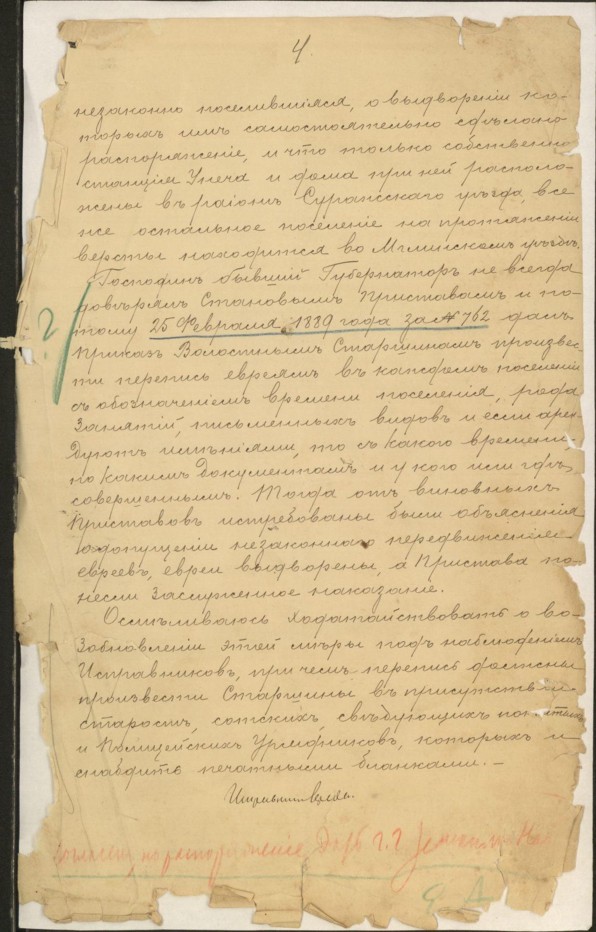 4.
незаконно поселившіяся, о выдвореніи ко-
торыхъ имъ самостоятельно сдѣлано
распоряженіе, и что только собственно
станція Унеча и дома при ней располо-
жены въ районѣ Суражскаго уѣзда, все
же остальное поселеніе на протяженіи
версты находится во Мглинскомъ уѣздѣ.
Господинъ бывшій Губернаторъ не всегда
довѣрялъ Становымъ Приставамъ и по-
тому 25 Февраля 1889 года за № 762 далъ
приказъ Волостнымъ Старшинамъ произвес-
ти перепись евреямъ въ каждомъ поселеніи
съ обозначеніемъ времени поселенія, рода
занятій, письменныхъ видовъ и если арен-
дуютъ имѣніями, то съ какого времени,
по какимъ документамъ и у кого или гдѣ
совершеннымъ. Тогда отъ виновныхъ
Приставовъ истребованы были объясненія
о допущеніи незаконнаго передвиженія
евреевъ, евреи выдворены, а Пристава по-
несли заслуженное наказаніе.
Осмѣливаюсь ходатайствовать о во-
зобновленіи этой мѣры подъ наблюденіемъ
Исправниковъ, при чемъ перепись должны
произвести Старшины въ присутствіи
старостъ, сотскихъ, свѣдующихъ понятыхъ
и Полицейскихъ Урядниковъ, которыхъ и
снабдить печатными бланками. —
?